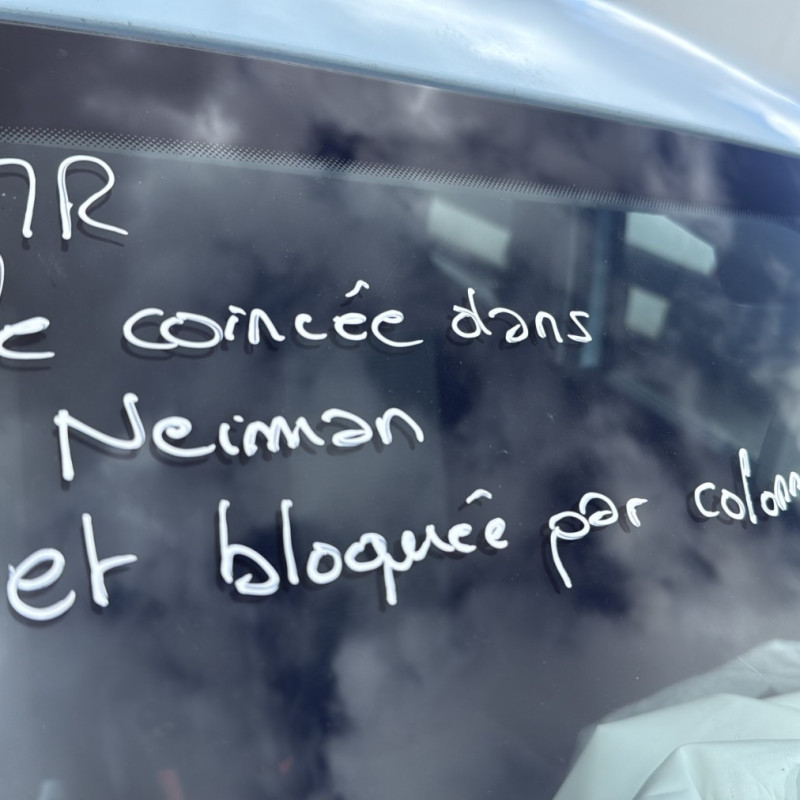 coincée dans
Neiman
et bloquée par